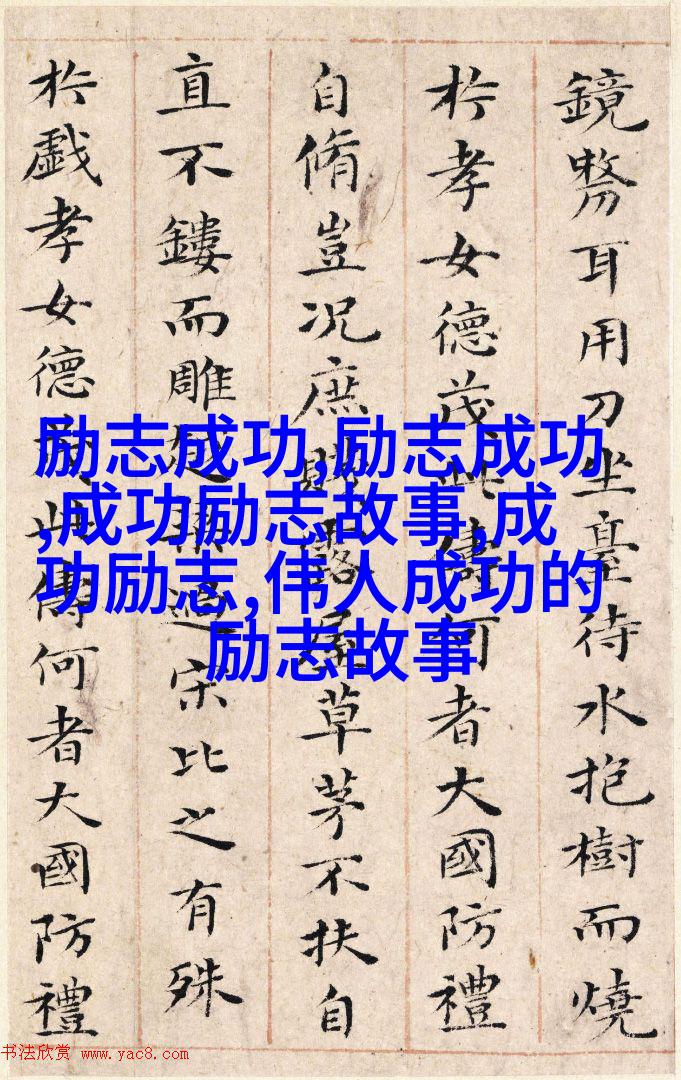 鏡剺耳用刀坐臺待水抱樹而燒
扵孝女德茂此儔何者大國防禮
自脩豈况庶賤露屋草茅不扶自
直不鏤而雕越梁過宋比之有殊
扵戲孝女德茂此儔何者大國防禮
励志成功,励志成功
,成功励志故事,成
功励志,伟人成功的
励志故事
书法欣赏 www.yac8.com